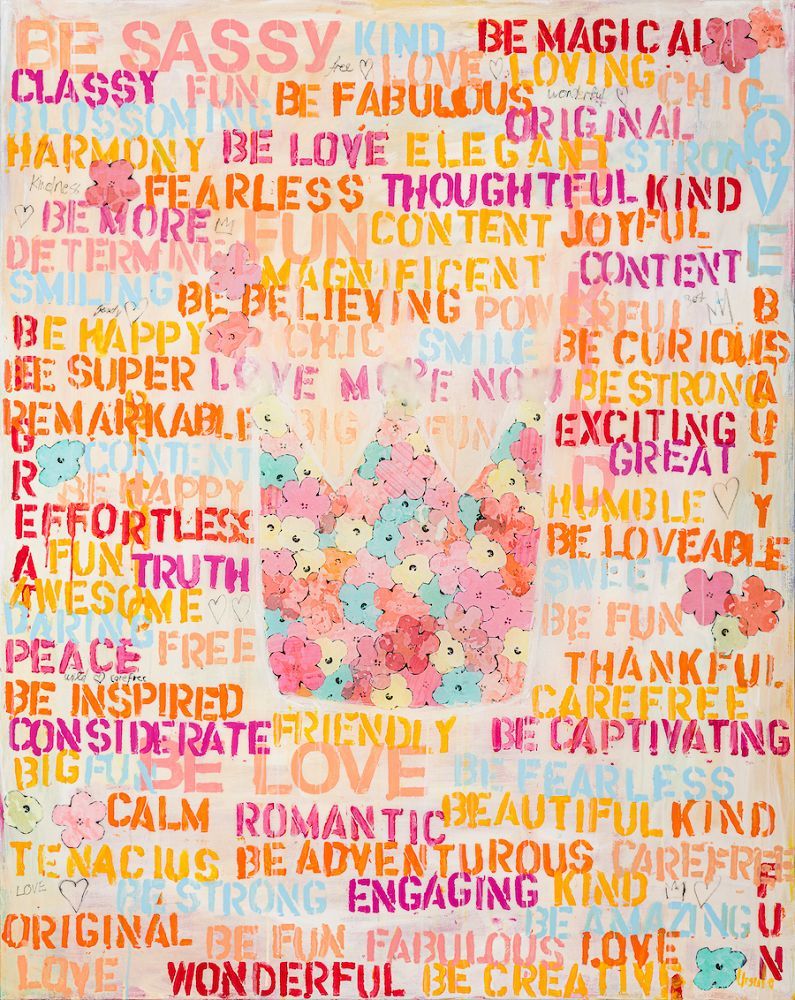 BE SASSY KIND BE MAGICAL
free LOVE LOVING
CLASSY FUN BE FABULOUS wonderful CHIC
BLOSSOMING ORIGINAL
HARMONY BE LOVE ELEGANT STRONG
LOVE
Kindness FEARLESS THOUGHTFUL KIND
BE MORE FUN CONTENT JOYFUL
DETERMINED MAGNIFICENT CONTENT
SMILING BE BELIEVING POWERFUL
BE HAPPY CHIC SMILE BE CURIOUS
BE SUPER LOVE MORE NOW BE STRONG
BEAUTY
REMARKABLE BIG FUN EXCITING
CONTENT GREAT
BE HAPPY HUMBLE
BE GREAT
EFFORTLESS BE LOVEABLE
FUN TRUTH SWEET
AWESOME
DARING BE FUN
PEACE FREE THANKFUL
carefree
BE INSPIRED CAREFREE
CONSIDERATE FRIENDLY BE CAPTIVATING
BIG FUN BE LOVE BE FEARLESS
CALM ROMANTIC BEAUTIFUL KIND
TENACIUS BE ADVENTUROUS CAREFREE
LOVE BE STRONG ENGAGING KIND
FUN
ORIGINAL BE FUN FABULOUS LOVE BE AMAZING
LOVE WONDERFUL BE CREATIVE